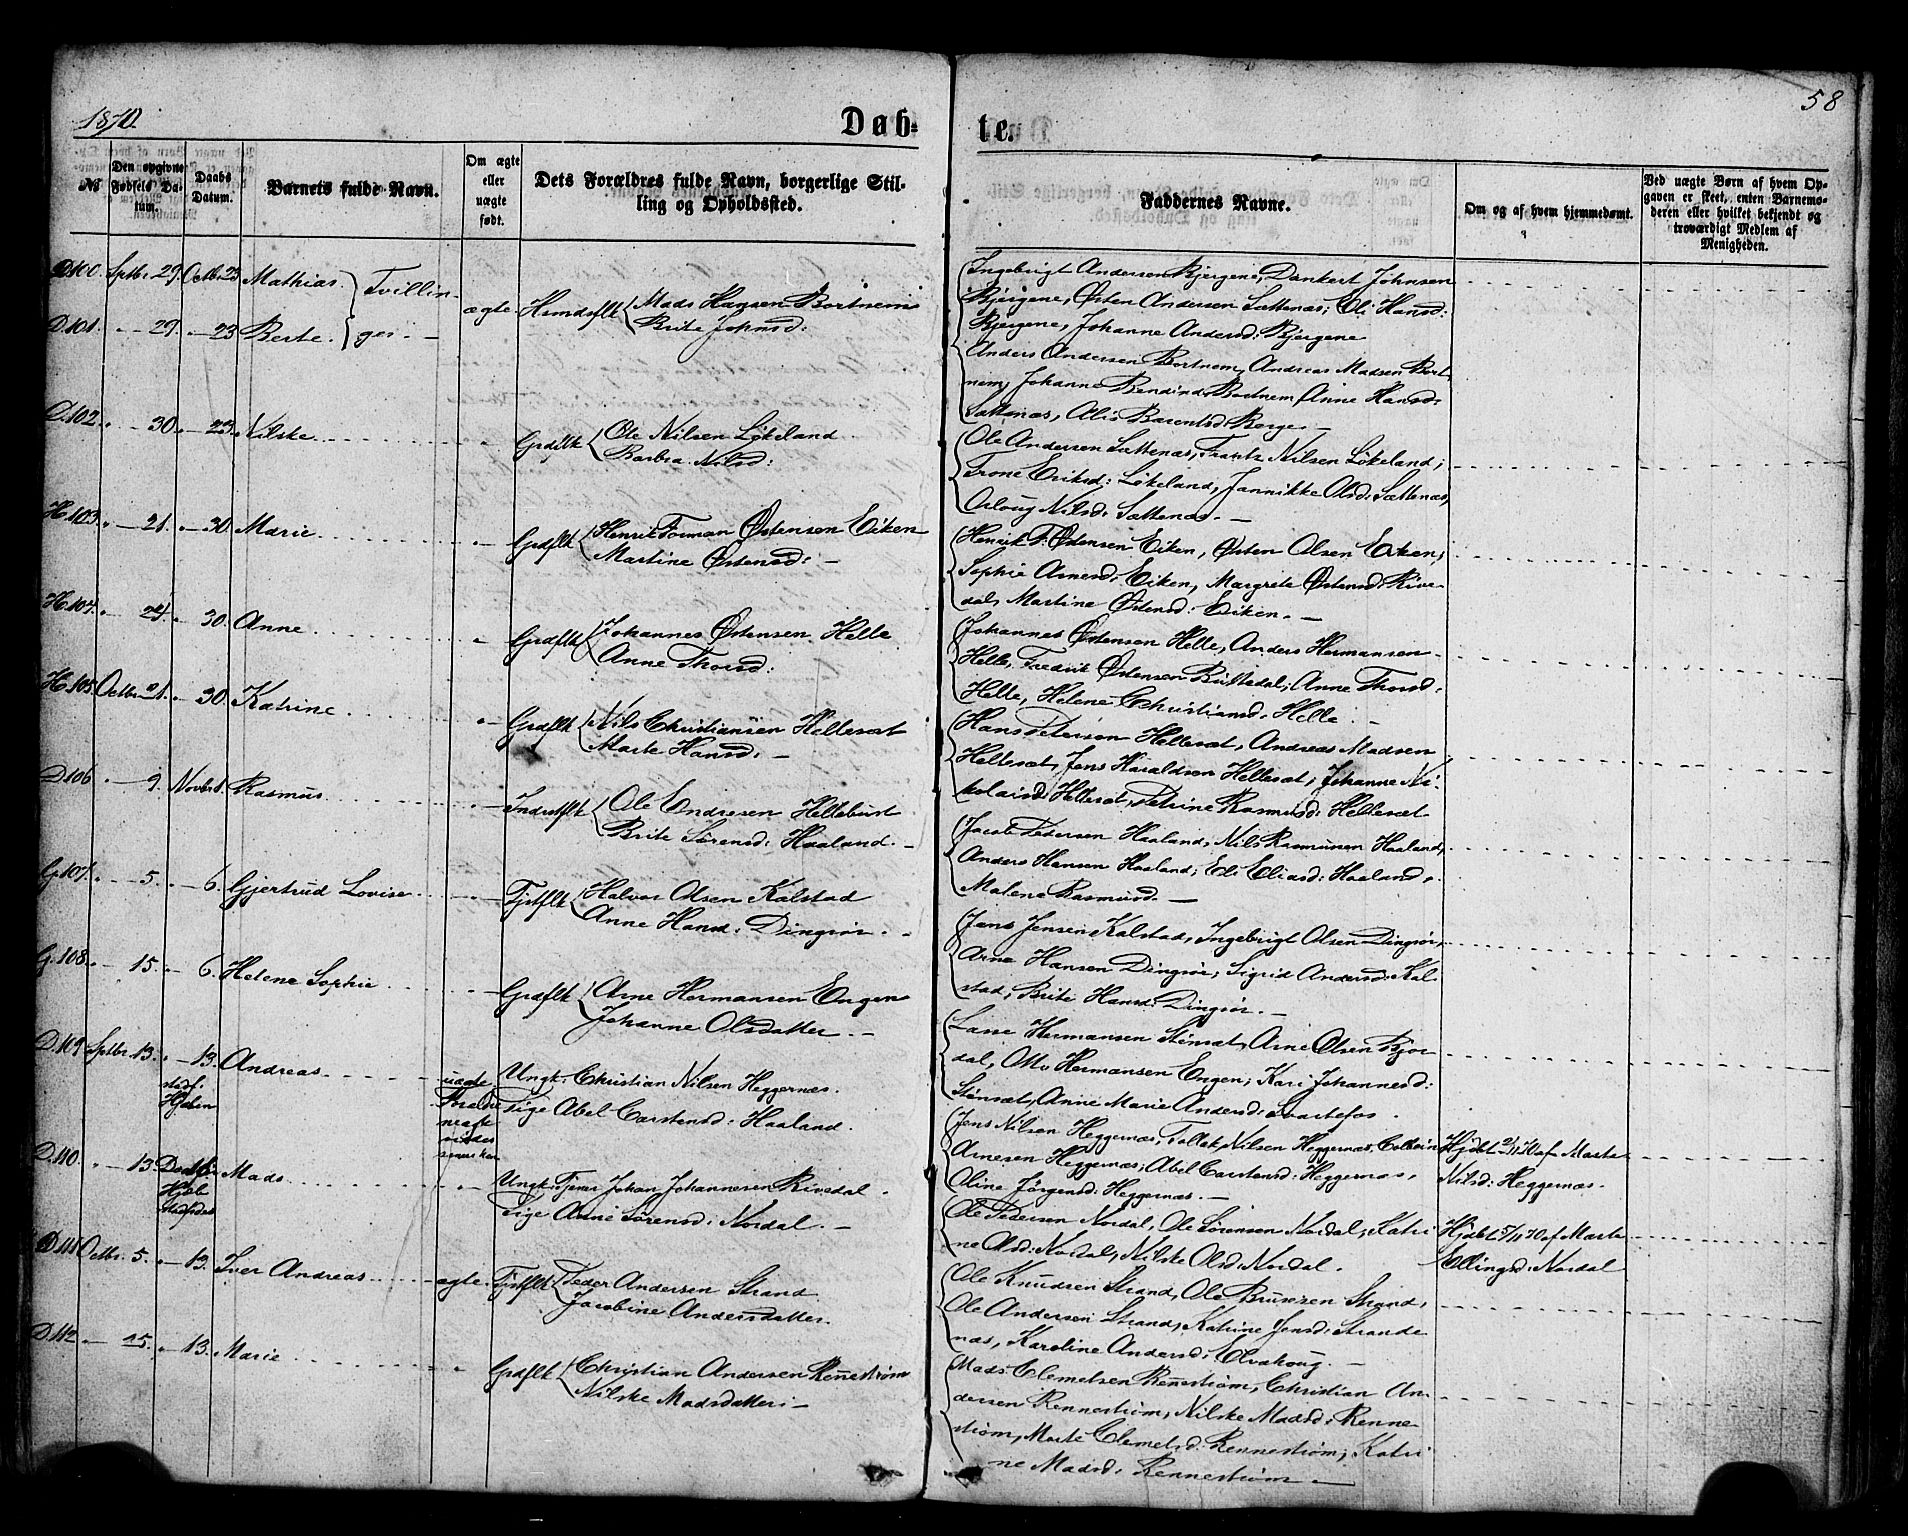 1870.
Døb-
te.
58
№
Den opgivne Fødsels Datum.
Daabs Datum.
Barnets fulde Navn.
Om ægte eller uægte født.
Dets Forældres fulde Navn, borgerlige Stilling og Opholdssted.
Faddernes Navne.
Om og af hvem hjemmedømt.
Ved uægte Børn af hvem Opgaven er skeet, enten Barnemoderen eller hvilket bekjendt og troværdigt Medlem af Menigheden.
D.100. Sptbr. 29. Octbr. 23 Mathias. } Tvillin-
D.101. " — 29. " — 23 Berte. } ger. —
ægte Hsmdsflk { Mads Hansen Bortnem
Brite Johnsd:
Ingebrigt Andersen Bjergene, Dankert Johnsen
Bjergene, Østen Andersen Sættenæs; Oli Hansd:
Bjergene, Johanne Andersd: Bjergene
Anders Andersen Bortnem, Andreas Madsen Bort-
nem, Johanne Bendixd: Bortnem, Anne Hansd:
Sættenæs, Alis Barentsd: Berge. —
D.102. " — 30. " — 23. Nilske
Grdflk { Ole Nilsen Løkeland
Barbra Nilsd:
Ole Andersen Sættenæs, Frantz Nilsen Løkeland;
Trone Eriksd: Løkeland, Jannikke Olsd: Sættenæs,
Osloug Nilsd: Sættenæs. —
H.103. " — 21. " — 30. Marie
" Grdflk { Henrik Forman Østensen Eiken
Martine Østensd: —
Henrik F. Østensen Eiken, Østen Olsen Eiken;
Sophie Arnesd: Eiken, Margrete Østensd: Rive-
dal, Martine Østensd: Eiken. —
H.104. " — 24. " 30. Anne
" Grdflk { Johannes Østensen Helle
Anne Thorsd:
Johannes Østensen Helle, Anders Hermansen
Helle, Fredrik Østensen Birkedal; Anne Thorsd:
Helle, Helene Christiansd: Helle. —
H.105. Octbr. 21. " 30. Katrine
" Grdflk { Nils Christiansen Hellesæt
Marte Hansd: —
Hans Petersen Hellesæt, Andreas Madsen
Hellesæt, Jens Haraldsen Hellesæt; Johanne Ni-
kolaisd: Hellesæt, Petrine Rasmusd: Hellesæt
D.106 " — 9. Novbr. 1. Rasmus
" Indrstflk { Ole Endresen Hellebust
Brite Sørensd: Haaland. —
Jacob Pedersen Haaland, Nils Rasmusen Haaland,
Anders Hansen Haaland; Eli Eliasd: Haaland,
Malene Rasmusd. —
G.107. " — 5. " — 6. Gjertrud Lovise
" Tjstflk { Halvor Olsen Kalstad
Anne Hansd: Dingsør. —
Jens Jensen Kalstad, Ingebrigt Olsen Dingsør,
Arne Hansen Dingsør; Sigrid Andersd: Kal-
stad, Brite Hansd: Dingsør. —
G.108. " — 15. " — 6. Helene Sophie
Grdflk { Arne Hermansen Engen
Johanne Olsdatter. —
Lasse Hermansen Stensæt, Arne Olsen Bjor-
dal, Otto Hermansen Engen; Kari Johannesd:
Stensæt, Anne Marie Andersd: Svartefos.
D.109 Sptbr. 13. " — 13. Andreas
uægte
Ungk. Christian Nilsen Heggernæs.
Pige Abel Carstensd: Haaland.
Jens Nilsen Heggernæs, Follak Nilsen Heggernæs, Colbein
Arnesen Heggernæs; Abel Carstensd: Heggernæs,
Oline Jørgensd: Heggernæs. —
Hjdbt 2/11 70 af Marta
Nilsd: Heggernæs.
D.110. " — 13. Mads
" Ungk. Tjener Johan Johannesen Rivedal
Pige Anne Sørensd: Nordal. —
Ole Pedersen Nordal, Ole Sørensen Nordal; Katri-
ne Olsd: Nordal, Nilske Olsd: Nordal.
Hjdbt 5/11 70 af Marta
Ellingsd: Nordal
D.111 Octbr. 5. " — 13. Iver Andreas
ægte. Tjstflk { Peder Andersen Strand
Jacobine Andersdatter.
Ole Knudsen Strand, Ole Brusesen Strand,
Ole Andersen Strand; Katrine Jensd: Strande-
næs, Karoline Andersd: Elvehoug. —
D.112 " — 25. " 13. Marie
" Grdflk { Christian Andersen Rennestrøm
Nilske Madsdatter: —
Mads Clemetsen Rennestrøm, Christian An-
dersen Rennestrøm; Nilske Madsd: Renne-
strøm, Marte Clemetsd: Rennestrøm; Katri-
ne Madsd: Rennestrøm —